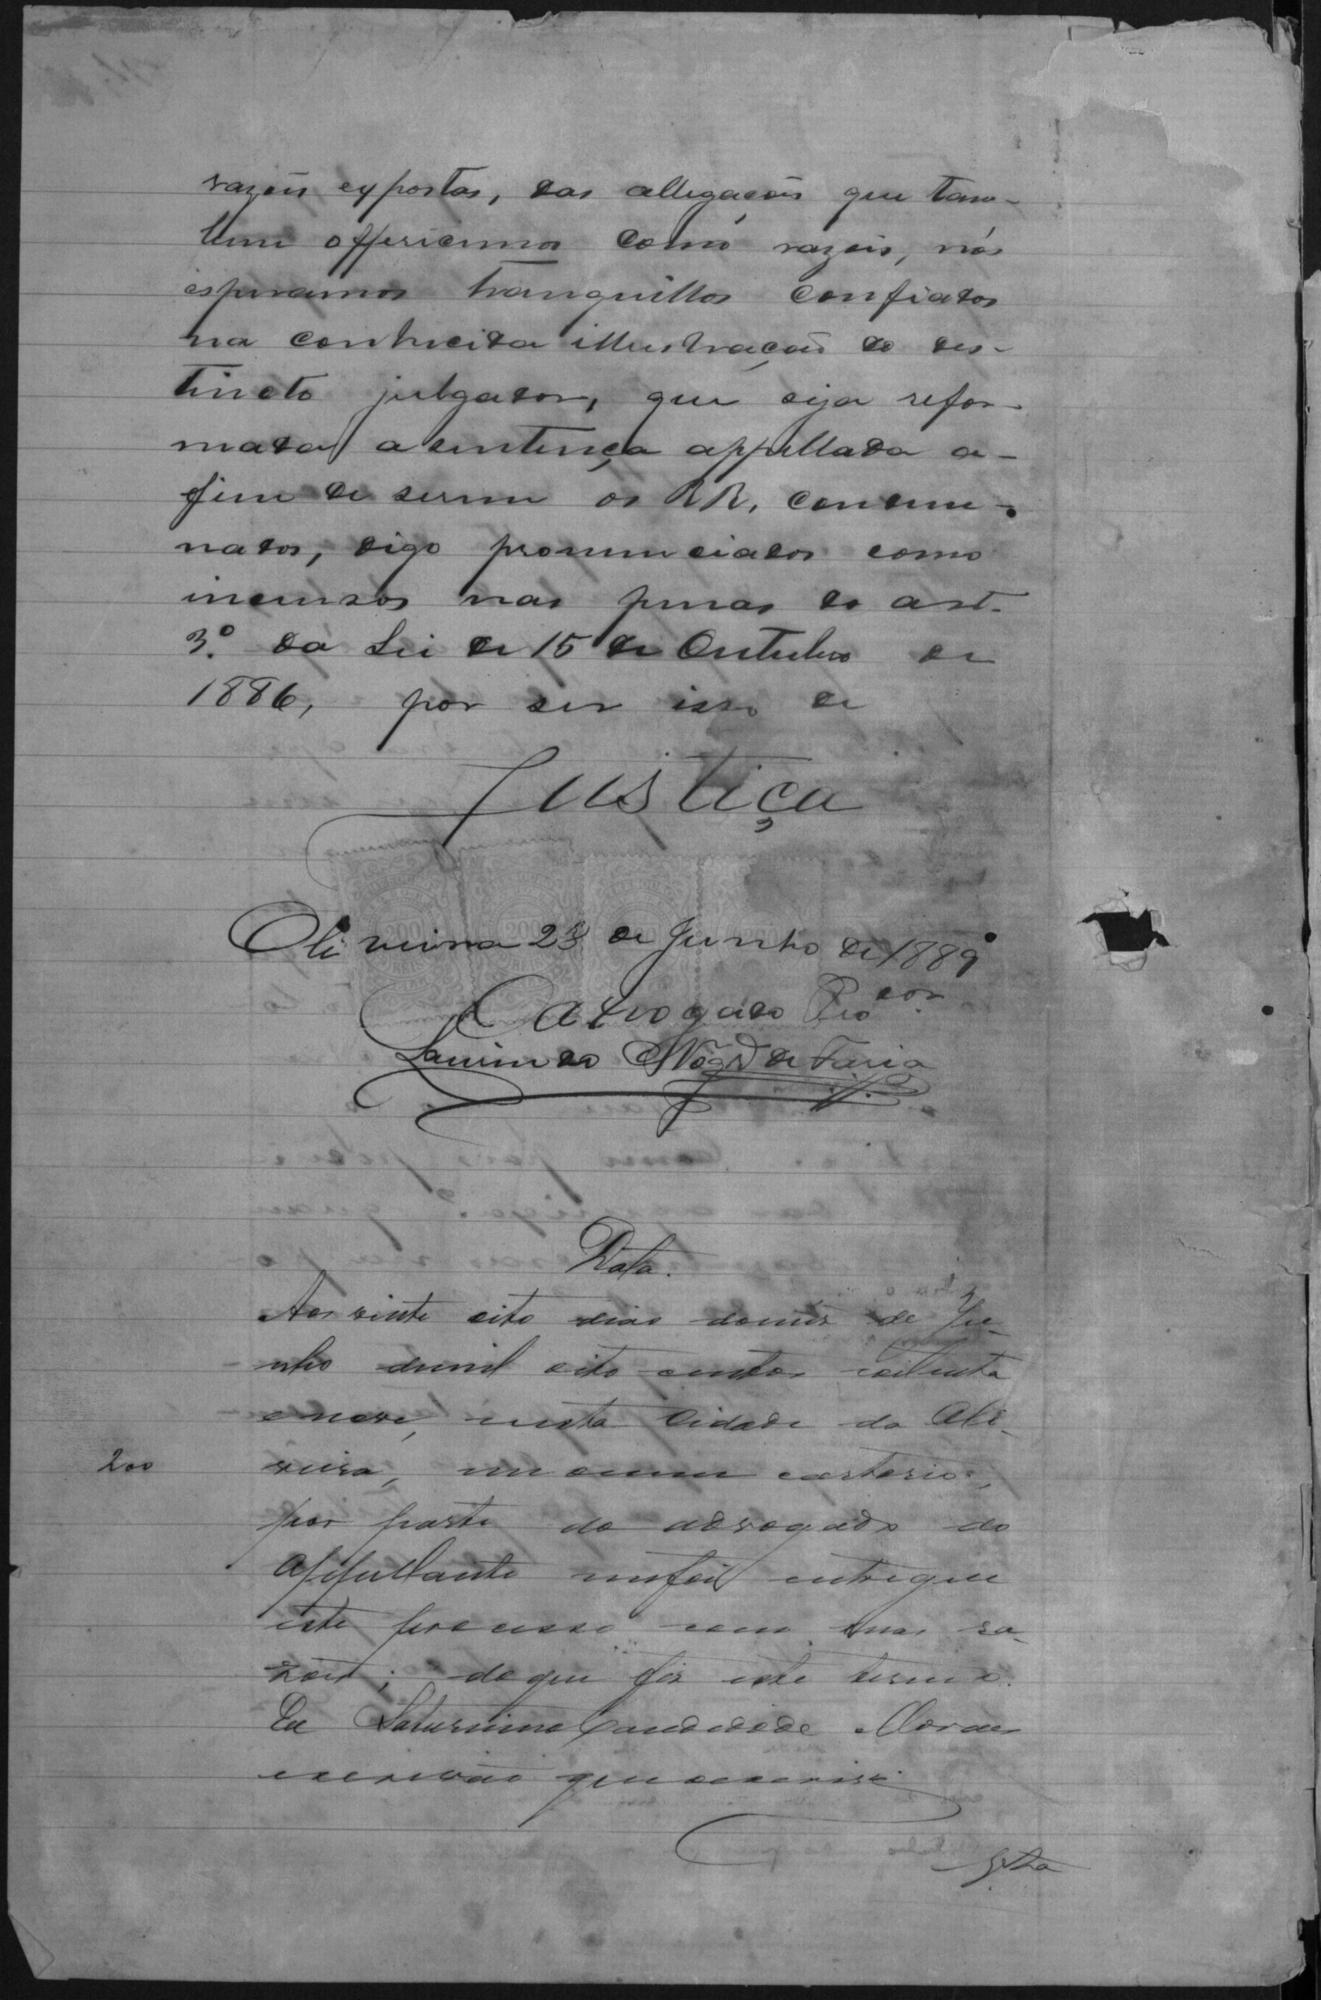 razões expostas, das allegacões que tam-
bem offericemos como razões, nós
esperamos tranquillos confiados
na conhecida illustração do des-
tincto julgador, que seja refor-
mada a sentença appellada a-
fim de serem os RR. condem-
nados, digo pronunciados como
incursos nas penas do art.
3º da Lei de 15 de Outubro de
1886, por ser isso de
Justiça
Oliveira 23 de Junho de 1889
O Advogado Prºdor
Laurindo Nogrª de Faria
Data.
Aos vinte oito dias do mes de Ju-
nho de mil oito centos oitenta
e nove, nesta Cidade da Oli-
veira, em o meu cartorio,
200
por parte do advogado do
appellante me foi entregue
este processo com suas ra-
zões; do que fiz este termo.
Eu Saturnino Candido de Moraes
escrivão que o escrevi.